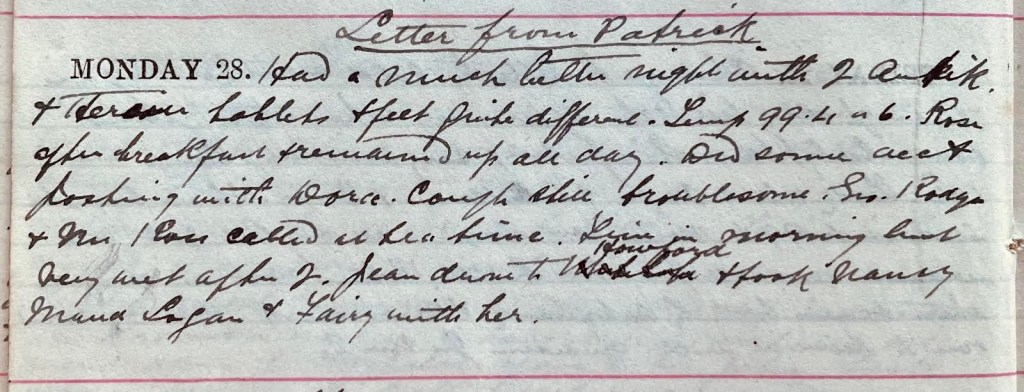 Letter from Patrick
MONDAY 28. Had a much better night with 2
& tablets & felt quite different. Temp 99.4 at 6. Rose
after breakfast & remained up all day. Did some acct
posting with Dora. Cough still troublesome. Geo. Rodger
& Mr Ross called at tea time. Fine in morning but
very wet after 2. Jean drove to Longford & took Nancy
Maud Logan & Fairy with her.